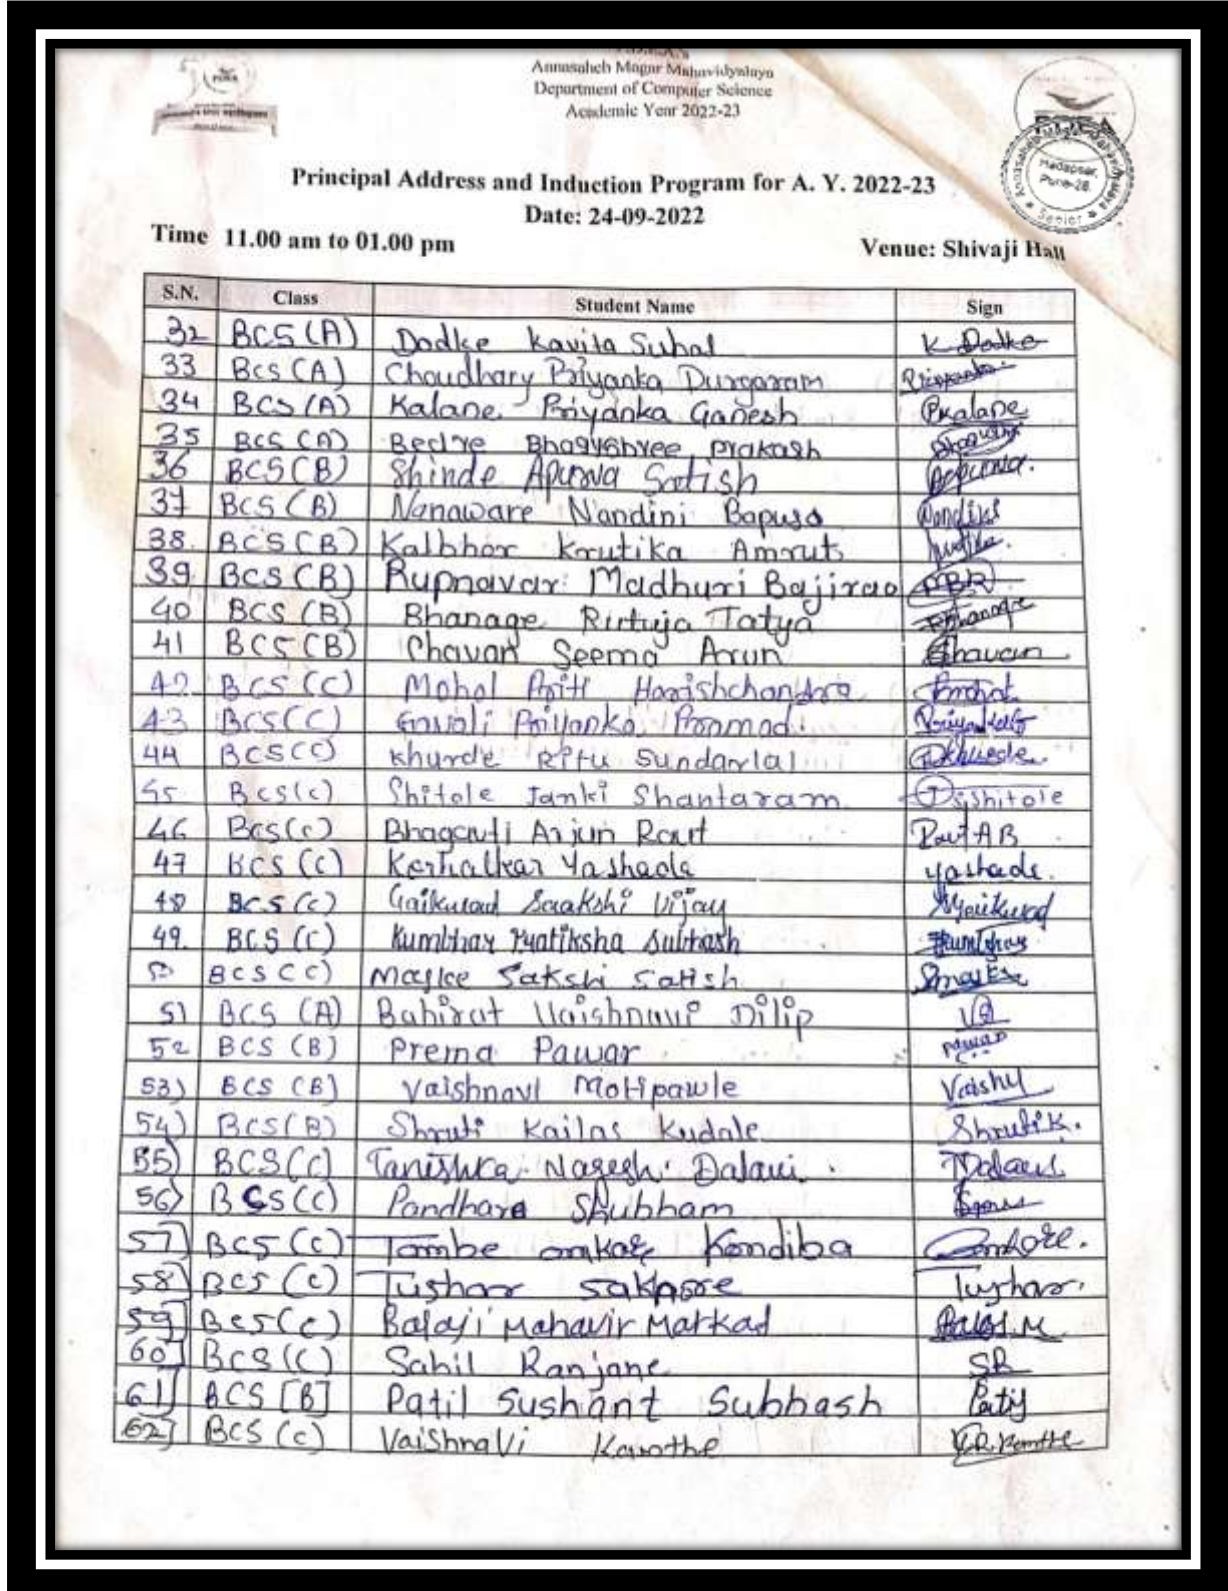 Annasaheb Magar Mahavidyalaya
Department of Computer Science
Academic Year 2022-23
Principal Address and Induction Program for A. Y. 2022-23
Date: 24-09-2022
Time 11.00 am to 01.00 pm
Venue: Shivaji Hall
Hadapsar,
Pune-28.
Senior
S.N. Class Student Name Sign
32 BCS (A) Dodke Kavita Suhal K Dodke
33 BCS (A) Choudhary Priyanka Durgaram
34 BCS (A) Kalane Priyanka Ganesh PKalane
35 BCS (A) Bedre Bhagyshree prakash
36 BCS (B) Shinde Apurva Satish Apurva.
37 BCS (B) Nanaware Nandini Bapuso Nandini
38. BCS (B) Kalbhor Krutika Amrut
39 BCS (B) Rupnavar Madhuri Bajirao MBR
40 BCS (B) Bhanage Rutuja Tatya Bhanage
41 BCS (B) Chavan Seema Arun Chavan
42 BCS (C) Mohol Priti Harishchandra
43 BCS (C) Gavali Priyanka Pramod.
44 BCS (C) Khurde Ritu Sundarlal
45 BCS (C) Shitole Janki Shantaram Shitole
46 BCS (C) Bhagawati Arjun Raut Raut AB
47 BCS (C) Kerhalkar Yashada yashada.
48 BCS (C) Gaikwad Saakshi Vijay
49. BCS (C) Kumbhar Pratiksha Subhash
50 BCS (C) Magar Sakshi Satish
51 BCS (A) Bahirat Vaishnavi Dilip VB
52 BCS (B) Prema Pawar Pawar
53) BCS (B) Vaishnavi Motipawle Vaishu
54) BCS (B) Shruti Kailas Kudale Shruti K.
55) BCS (C) Tanishka Nagesh Dalavi. TDalavi
56) BCS (C) Pandhare Shubham
57] BCS (C) Tambe omkar Kondiba
58] BCS (C) Tushar sakpare Tushar.
59] BCS (C) Balaji Mahavir Markad Balaji.M
60] BCS (C) Sahil Ranjane SR
61] BCS [B] Patil Sushant Subhash Patil
62] BCS (C) Vaishnavi Kamthe V.R. Kamthe